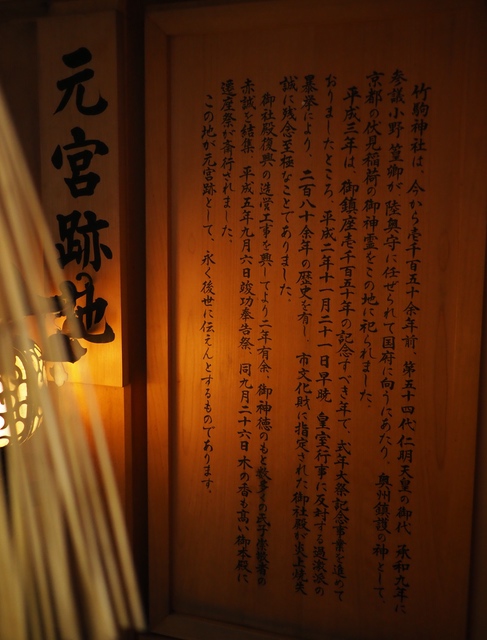 竹駒神社は、今から壱千百五十余年前、第五十四代 仁明天皇の御代 承和九年に
参議小野 篁卿が 陸奥守に任ぜられて国府に向うにあたり、奥州鎮護の神として、
京都の伏見稲荷の御神霊をこの地に祀られました。
平成三年は、御鎮座壱千百五十年の記念すべき年で、式年大祭記念事業を進めて
おりましたところ、平成二年十一月二十一日早暁 皇室行事に反対する過激派の
暴挙により、二百八十余年の歴史を有し、市文化財に指定された御社殿が炎上焼失
誠に残念至極なことでありました。
御社殿復興の造営工事を興してより二年有余、御神徳のもと数多くの氏子崇敬者の
赤誠を結集、平成五年九月六日竣功奉告祭、同九月二十六日 木の香も高い御本殿に
遷座祭が斎行されました。
この地が元宮跡として、永く後世に伝えんとするものであります。
元宮跡地